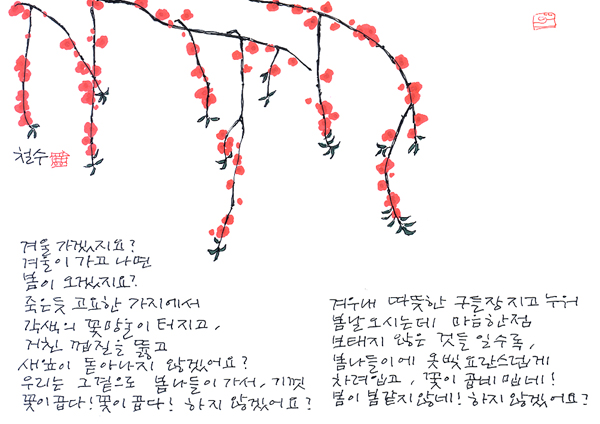 철수
겨울 가겠지요?
겨울이 가고 나면
봄이 오겠지요?
죽은듯 고요한 가지에서
각색의 꽃망울이 터지고,
거친 껍질을 뚫고
새잎이 돋아나지 않겠어요?
우리는 그곁으로 봄나들이 가서, 기껏
꽃이 곱다! 꽃이 곱다! 하지 않겠어요?
겨우내 따뜻한 구들장 지고 누워
봄날 오시는데 마음 한점
보태지 않은 것들 일수록,
봄나들이에 옷빛 요란스럽게
차려입고, 꽃이 곱네 밉네!
봄이 봄같지 않네! 하지 않겠어요?